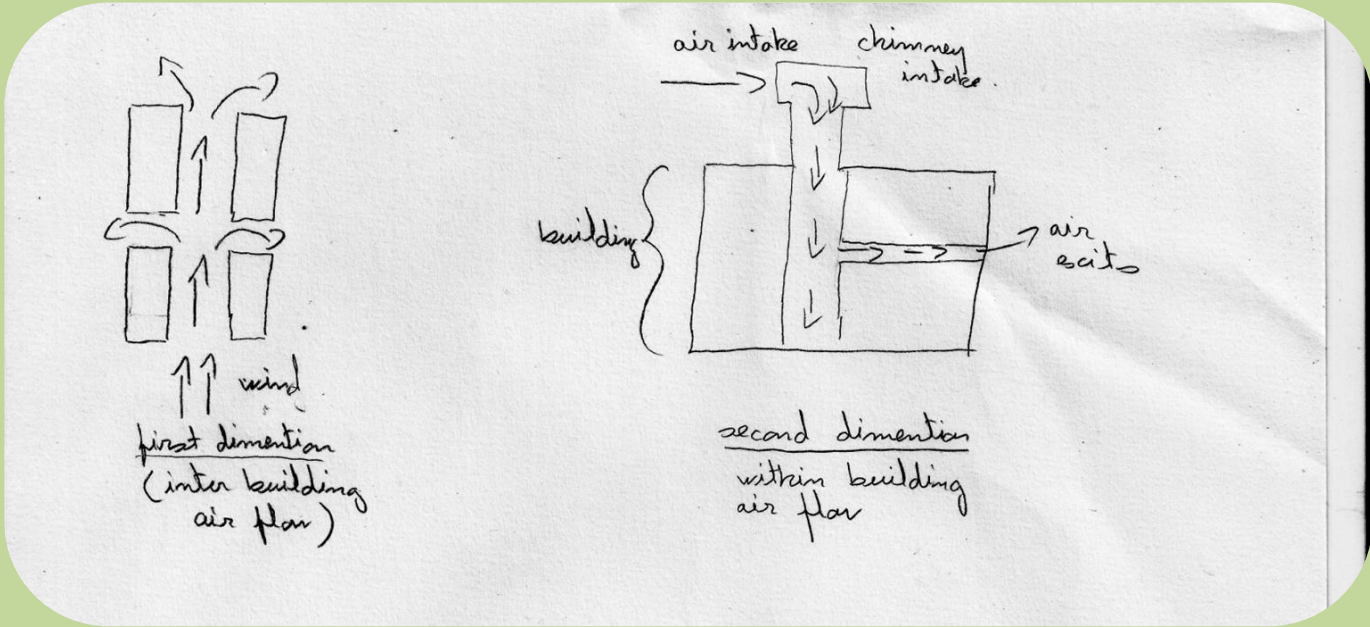 wind
first dimention
(inter building
air flow)
air intake
chimney
intake.
building
air
exits
second dimention
within building
air flow